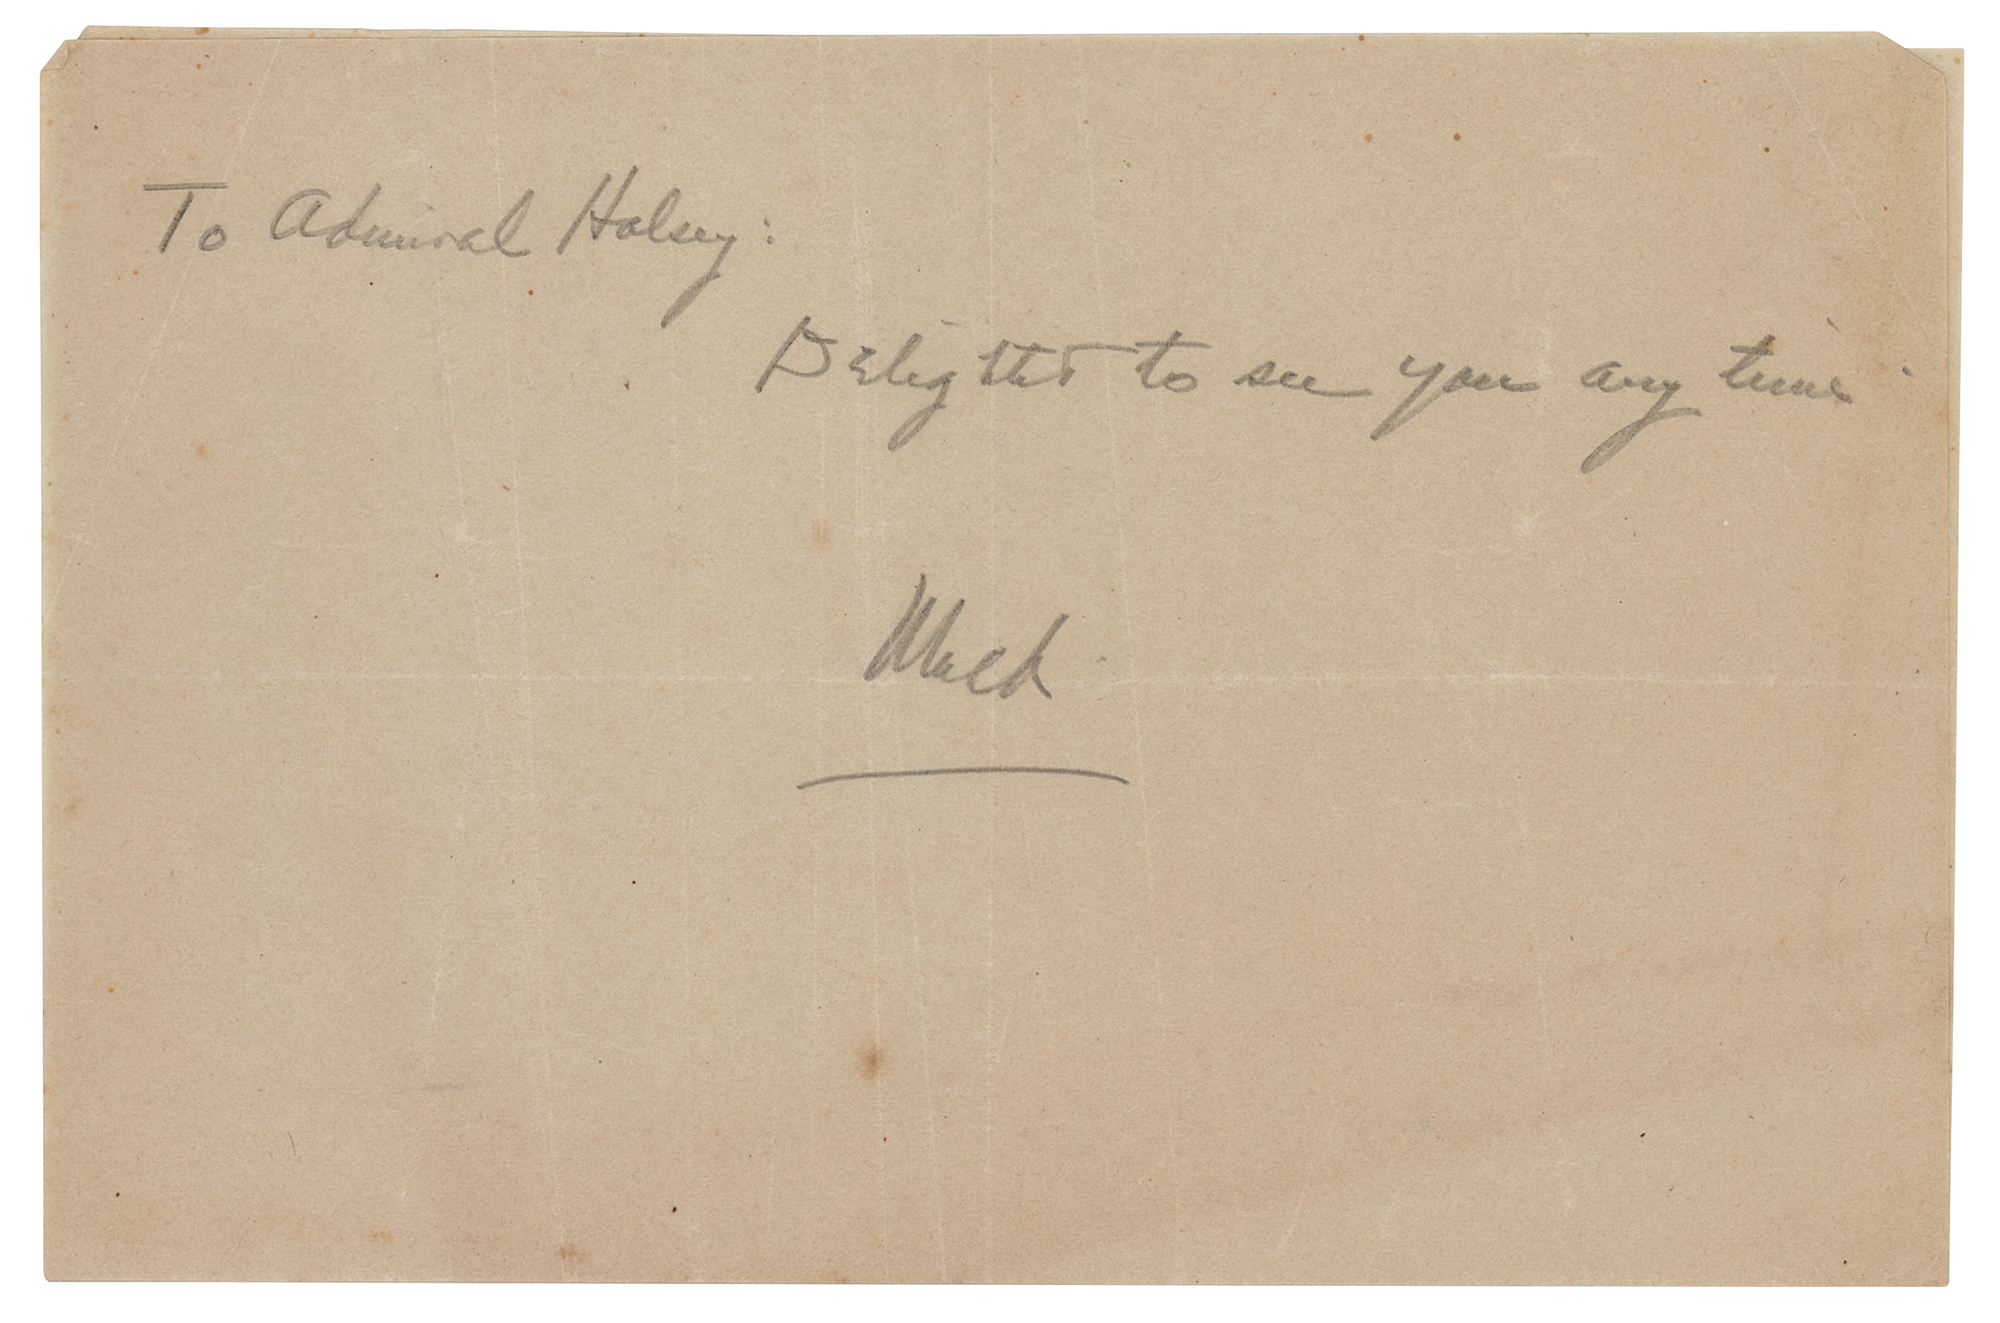 To Admiral Halsey:
Delighted to see you any time.